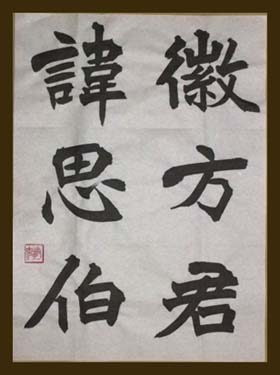 徽方君
諱思伯